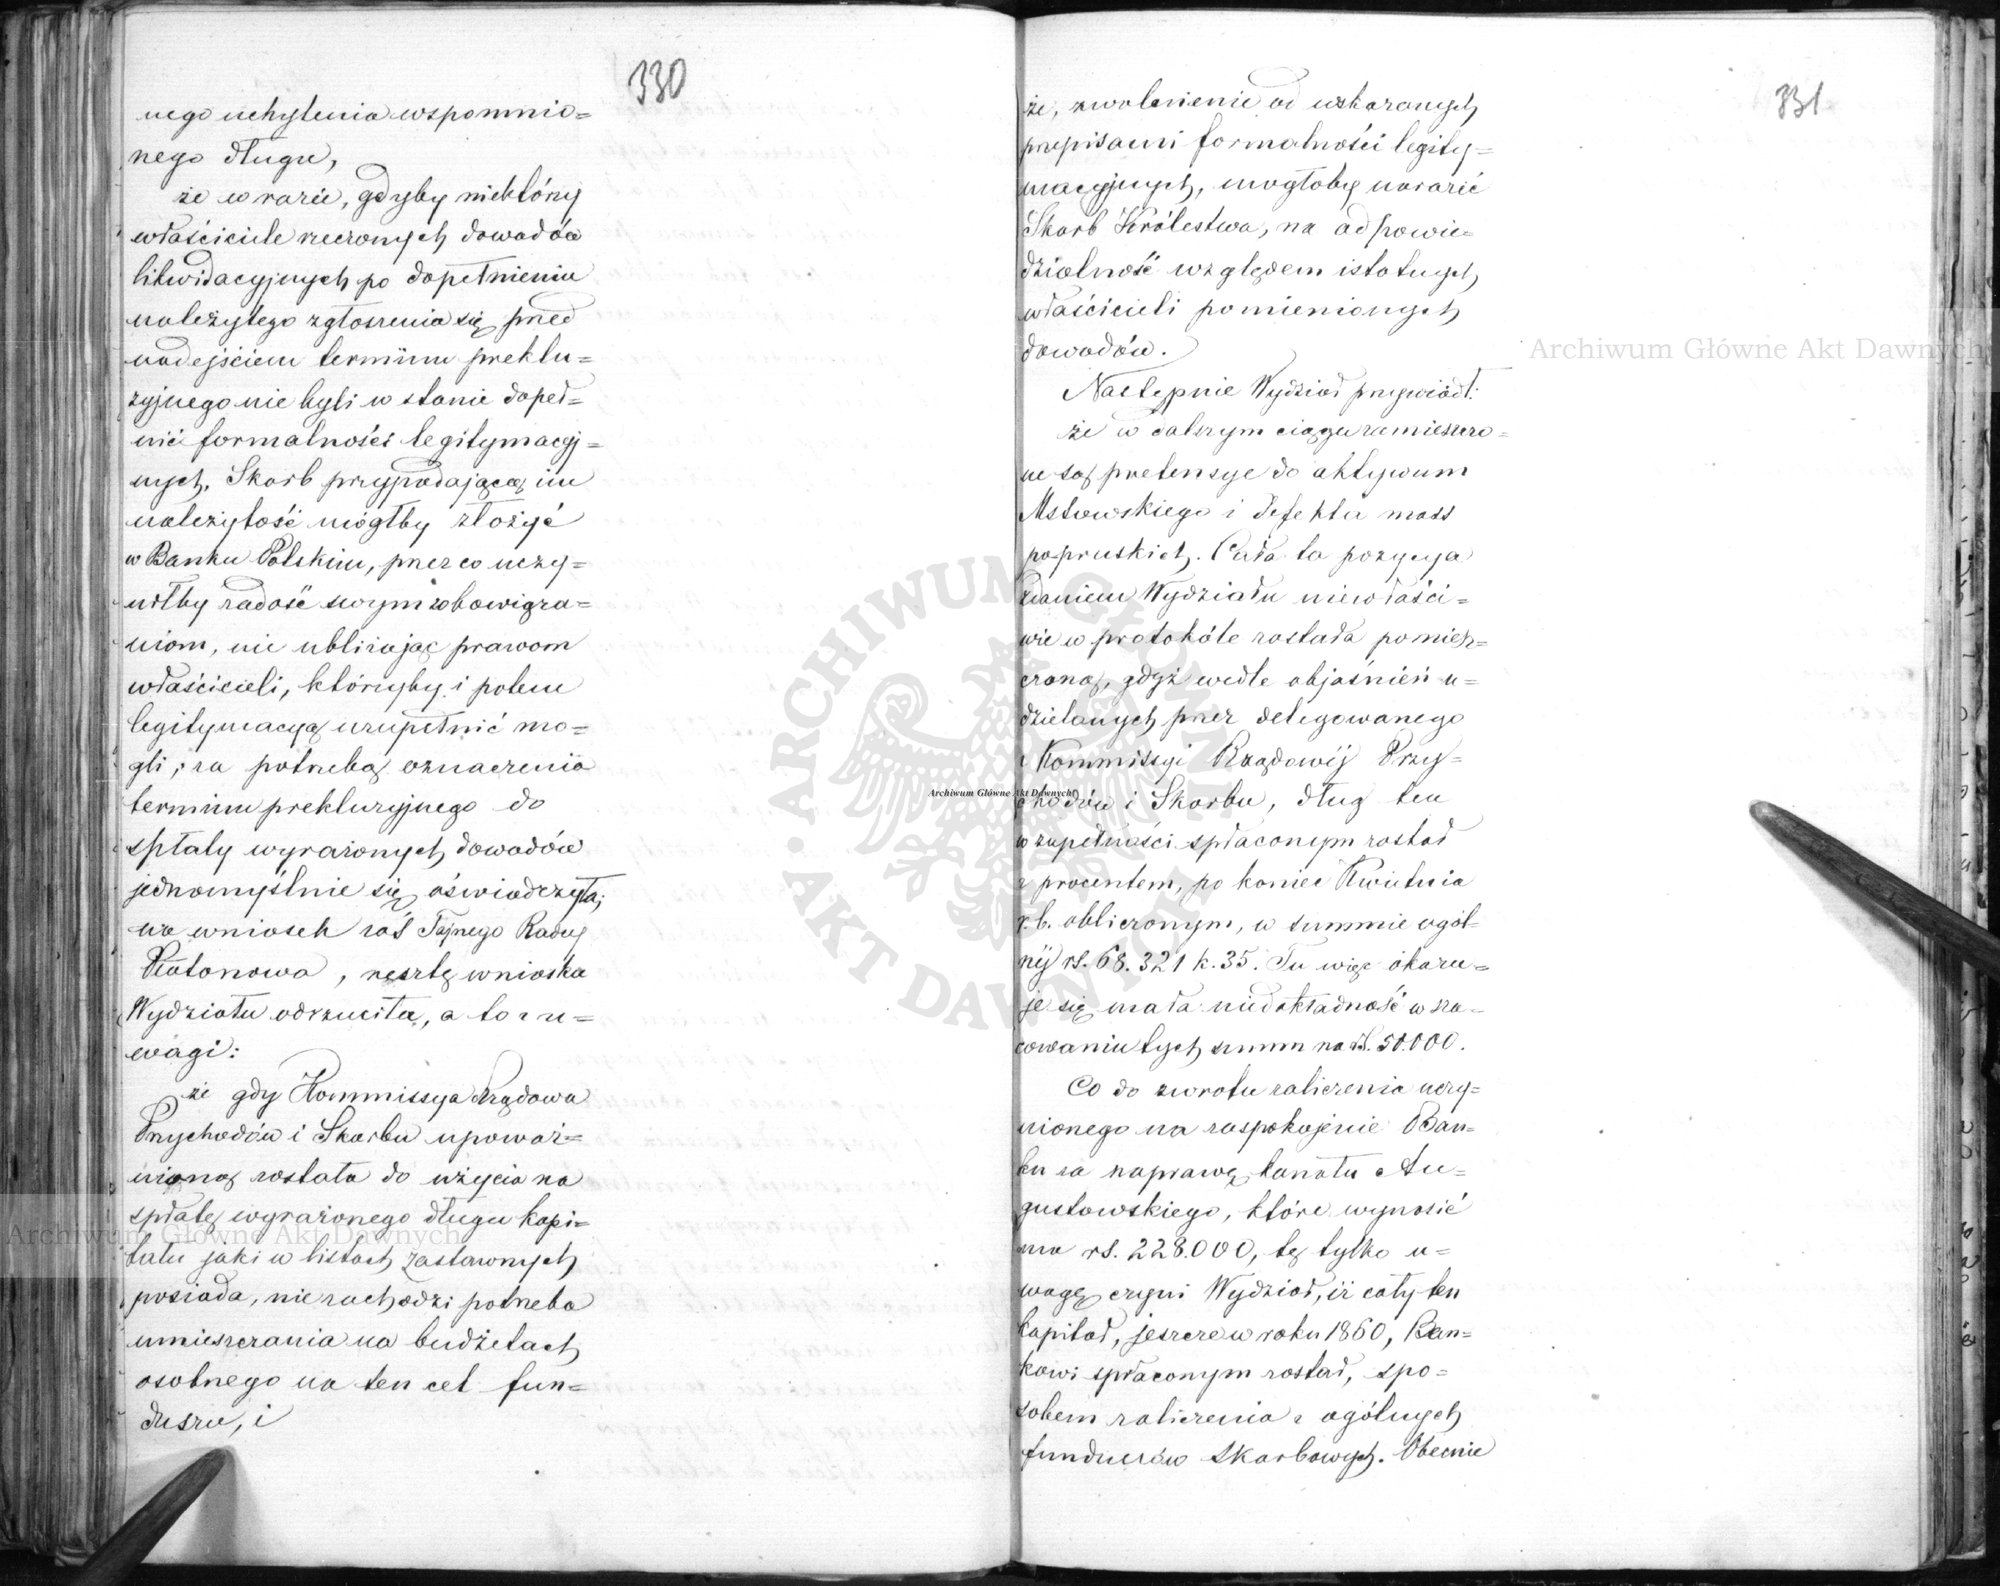 330
nego uchylenia wspomnio=
nego długu,
że w razie, gdyby niektórzy
właściciele rzeczonych dowodów
likwidacyjnych po dopełnieniu
należytego zgłoszenia się przed
nadejściem terminu preklu=
zyjnego nie byli w stanie dopeł=
nić formalności legitymacyj=
nych, Skarb przypadającą im
należytość mógłby złożyć
w Banku Polskim, przez co uczy=
niłby zadość swym zobowiąza=
niom, nie ubliżając prawom
właścicieli, którzyby i potem
legitymacyą uzupełnić mo=
gli; za potrzebą oznaczenia
terminu prekluzyjnego do
spłaty wyrażonych dowodów
jednomyślnie się oświadczyła;
na wniosek zaś Tajnego Radcy
Płatonowa, resztę wniosku
Wydziału odrzuciła, a to z u=
wagi:
że gdy Kommissya Rządowa
Przychodów i Skarbu upoważ=
nioną została do użycia na
spłatę wyrażonego długu kapi=
tału jaki w listach zastawnych
posiada, nie zachodzi potrzeba
umieszczania na budżetach
osobnego na ten cel fun=
duszu, i
331
że, zwolnienie od wskazanych
przepisami formalności legity=
macyjnych, mogłoby narazić
Skarb Królestwa, na odpowie=
dzialność względem istotnych
właścicieli pomienionych
dowodów.
Następnie Wydział przywiódł:
że w dalszym ciągu zamieszczo=
ne są pretensye do aktywum
Mstowskiego i defektu mass
popruskich. Cała ta pozycya
zdaniem Wydziału niewłaści=
wie w protokóle została pomiesz=
czoną, gdyż wedle objaśnień u=
dzielanych przez delegowanego
z Kommissyi Rządowéj Przy=
chodów i Skarbu, dług ten
w zupełności spłaconym został
z procentem, po koniec Kwietnia
r. b. obliczonym, w summie ogól=
néj rs. 68.321 k. 35. Tu więc okazu=
je się mała niedokładność w sza=
cowaniu tych summ na rs. 50.000.
Co do zwrotu zaliczenia uczy=
nionego na zaspokojenie Ban=
ku za naprawę kanału Au=
gustowskiego, które wynosić
ma rs. 228.000, tę tylko u=
wagę czyni Wydział, iż cały ten
kapitał, jeszcze w roku 1860, Ban=
kowi spłaconym został, spo=
sobem zaliczenia z ogólnych
funduszów skarbowych. Obecnie
Archiwum Główne Akt Dawnych
Archiwum Główne Akt Dawnych
Archiwum Główne Akt Dawnych
ARCHIWUM GŁÓWNE AKT DAWNYCH